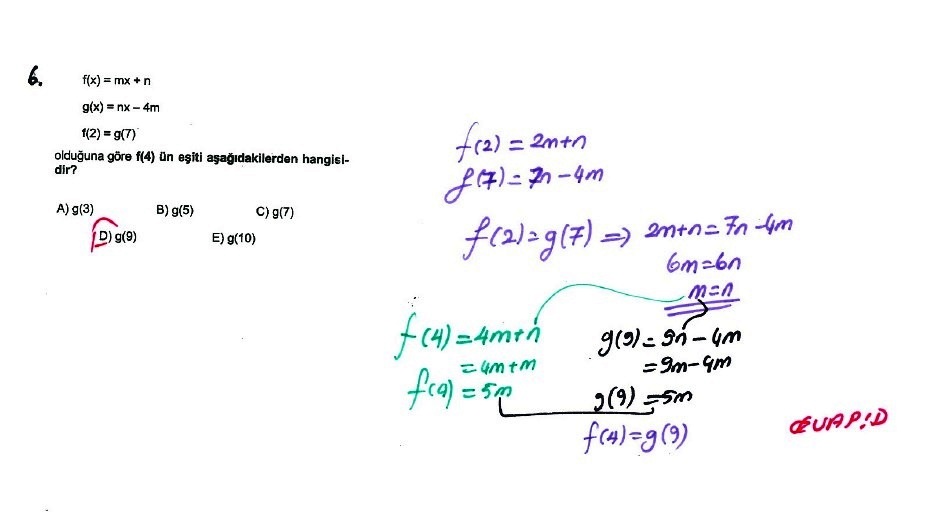 6.
f(x) = mx + n
g(x) = nx – 4m
f(2) = g(7)
olduğuna göre f(4) ün eşiti aşağıdakilerden hangisi-
dir?
A) g(3) B) g(5) C) g(7)
D) g(9) E) g(10)
f(2) = 2m+n
g(7) = 7n – 4m
f(2) = g(7) ⇒ 2m+n = 7n – 4m
6m = 6n
m = n
f(4) = 4m+n
= 4m+m
f(4) = 5m
g(9) = 9n – 4m
= 9m – 4m
g(9) = 5m
f(4) = g(9)
CEVAP:D